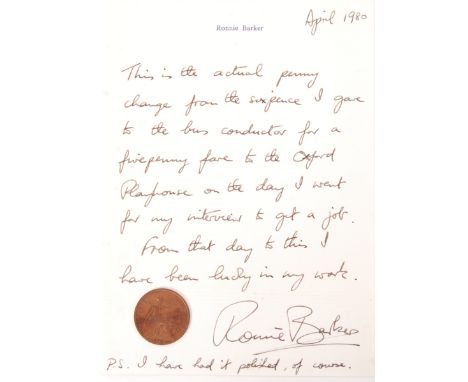 Ronnie Barker
April 1980
This is the actual penny
change from the sixpence I gave
to the bus conductor for a
fivepenny fare to the Oxford
Playhouse on the day I went
for my interview to get a job.
From that day to this I
have been lucky in my work.
Ronnie Barker
P.S. I have had it polished, of course.